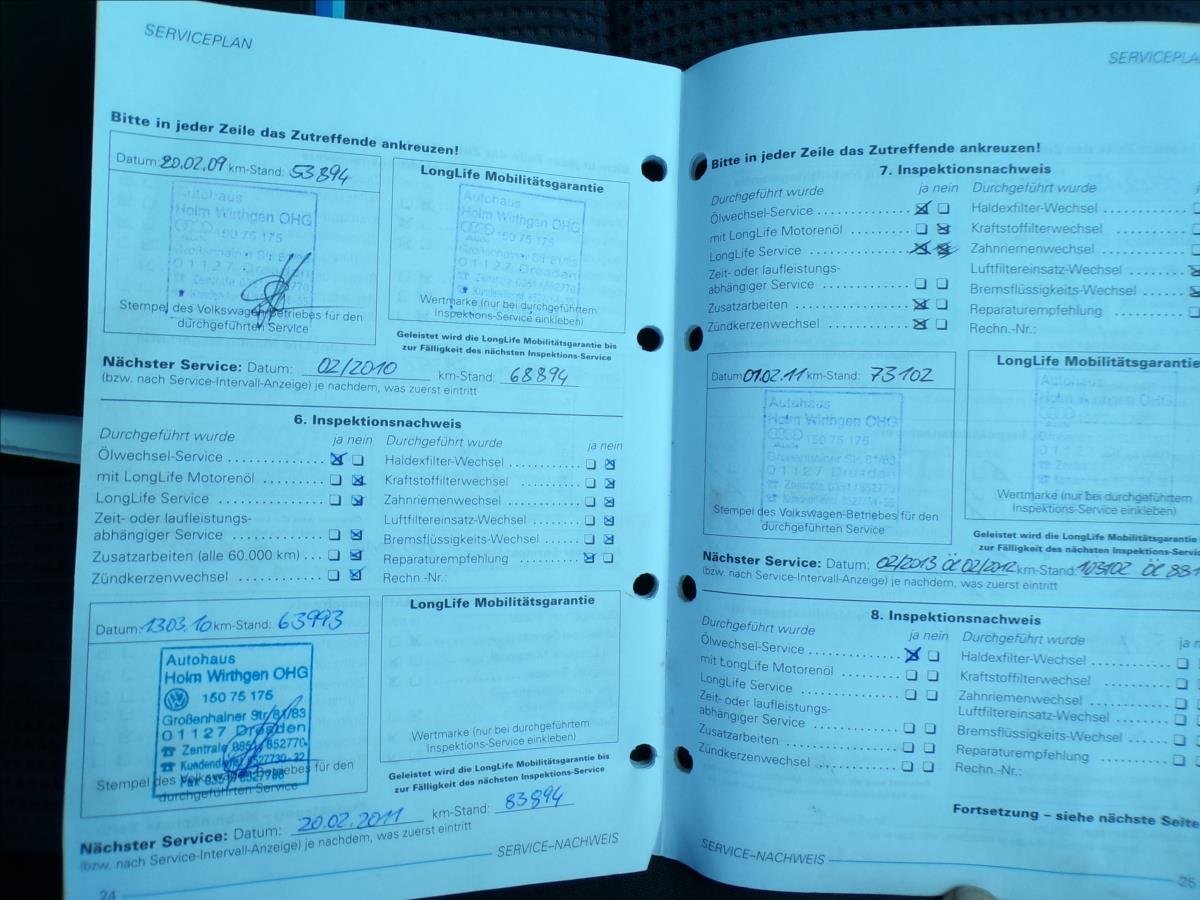 SERVICEPLAN
Bitte in jeder Zeile das Zutreffende ankreuzen!
Datum: 20.02.09 km-Stand: 53894
Autohaus
Holm Wirthgen OHG
150 75 175
Großenhainer Str. 81/83
01127 Dresden
Stempel des Volkswagen-Betriebes für den
durchgeführten Service
LongLife Mobilitätsgarantie
Autohaus
Holm Wirthgen OHG
150 75 175
Großenhainer Str. 81/83
01127 Dresden
Wertmarke (nur bei durchgeführtem
Inspektions-Service einkleben)
Geleistet wird die LongLife Mobilitätsgarantie bis
zur Fälligkeit des nächsten Inspektions-Service
Nächster Service: Datum: 02/2010 km-Stand: 68894
(bzw. nach Service-Intervall-Anzeige) je nachdem, was zuerst eintritt
6. Inspektionsnachweis
Durchgeführt wurde ja nein
Ölwechsel-Service
mit LongLife Motorenöl
LongLife Service
Zeit- oder laufleistungs-
abhängiger Service
Zusatzarbeiten (alle 60.000 km)
Zündkerzenwechsel
Durchgeführt wurde ja nein
Haldexfilter-Wechsel
Kraftstoffilterwechsel
Zahnriemenwechsel
Luftfiltereinsatz-Wechsel
Bremsflüssigkeits-Wechsel
Reparaturempfehlung
Rechn.-Nr.:
Datum: 13.03.10 km-Stand: 63993
Autohaus
Holm Wirthgen OHG
150 75 175
Großenhainer Str. 81/83
01127 Dresden
Zentrale 0351/852770
Kundendienst 8527730-32
Stempel des Volkswagen-Betriebes für den
durchgeführten Service
LongLife Mobilitätsgarantie
Wertmarke (nur bei durchgeführtem
Inspektions-Service einkleben)
Geleistet wird die LongLife Mobilitätsgarantie bis
zur Fälligkeit des nächsten Inspektions-Service
Nächster Service: Datum: 20.02.2011 km-Stand: 83894
(bzw. nach Service-Intervall-Anzeige) je nachdem, was zuerst eintritt
SERVICE–NACHWEIS
24
SERVICEPLA
Bitte in jeder Zeile das Zutreffende ankreuzen!
7. Inspektionsnachweis
Durchgeführt wurde ja nein
Ölwechsel-Service
mit LongLife Motorenöl
LongLife Service
Zeit- oder laufleistungs-
abhängiger Service
Zusatzarbeiten
Zündkerzenwechsel
Durchgeführt wurde
Haldexfilter-Wechsel
Kraftstoffilterwechsel
Zahnriemenwechsel
Luftfiltereinsatz-Wechsel
Bremsflüssigkeits-Wechsel
Reparaturempfehlung
Rechn.-Nr.:
Datum: 01.02.11 km-Stand: 73102
Autohaus
Holm Wirthgen OHG
150 75 175
Großenhainer Str. 81/83
01127 Dresden
Stempel des Volkswagen-Betriebes für den
durchgeführten Service
LongLife Mobilitätsgarantie
Wertmarke (nur bei durchgeführtem
Inspektions-Service einkleben)
Geleistet wird die LongLife Mobilitätsgarantie
zur Fälligkeit des nächsten Inspektions-Service
Nächster Service: Datum: 02/2013 Öl 02/2012 km-Stand: 103102 Öl 881
(bzw. nach Service-Intervall-Anzeige) je nachdem, was zuerst eintritt
8. Inspektionsnachweis
Durchgeführt wurde ja nein
Ölwechsel-Service
mit LongLife Motorenöl
LongLife Service
Zeit- oder laufleistungs-
abhängiger Service
Zusatzarbeiten
Zündkerzenwechsel
Durchgeführt wurde ja n
Haldexfilter-Wechsel
Kraftstoffilterwechsel
Zahnriemenwechsel
Luftfiltereinsatz-Wechsel
Bremsflüssigkeits-Wechsel
Reparaturempfehlung
Rechn.-Nr.:
Fortsetzung – siehe nächste Seite
SERVICE–NACHWEIS
25